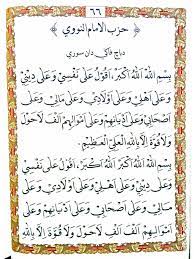 ٦٦
حزب الامام النووي
دباچ فاݢي دان سوري
بِسْمِ اللهِ اَللهُ اَكْبَرُ، اَقُوْلُ عَلَى نَفْسِيْ وَعَلَى دِيْنِيْ
وَعَلَى اَهْلِيْ وَعَلَى اَوْلَادِيْ وَعَلَى مَالِيْ وَعَلَى
اَصْحَابِيْ وَعَلَى اَدْيَانِهِمْ وَعَلَى اَمْوَالِهِمْ اَلْفَ لَاحَوْلَ
وَلَا قُوَّةَ اِلَّا بِاللهِ الْعَلِيِّ الْعَظِيْمِ.
بِسْمِ اللهِ اَللهُ اَكْبَرُ، اَللهُ اَكْبَرُ، اَقُوْلُ عَلَى نَفْسِيْ
وَعَلَى دِيْنِيْ وَعَلَى اَهْلِيْ وَعَلَى اَوْلَادِيْ وَعَلَى
مَالِيْ وَعَلَى اَصْحَابِيْ وَعَلَى اَدْيَانِهِمْ وَعَلَى
اَمْوَالِهِمْ اَلْفَ اَلْفِ لَاحَوْلَ وَلَا قُوَّةَ اِلَّا بِاللهِ